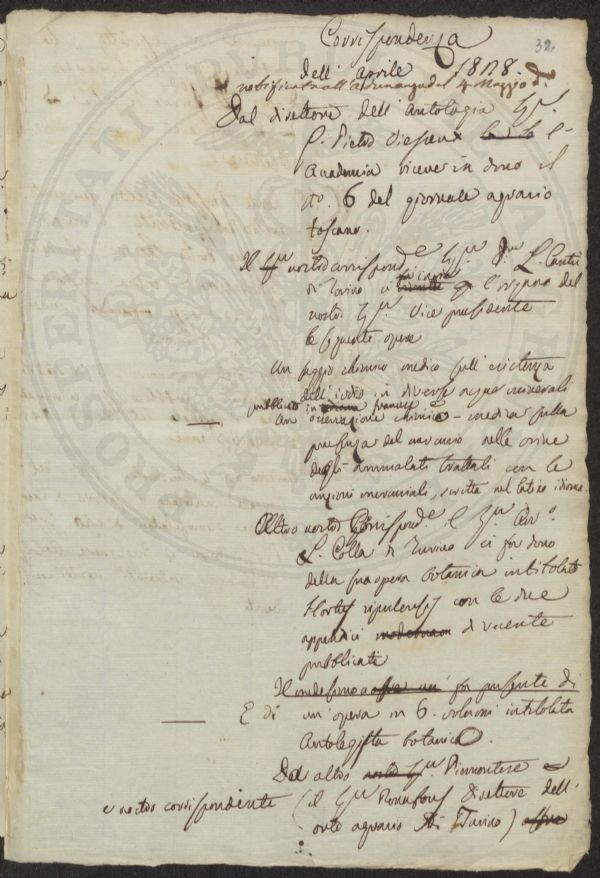 32.
Corrispondenza
dell'Aprile 1828.
notificata nell'adunanza del 4 Maggio d.
Dal direttore dell'antologia Sigr.
P. Pietro Viesseux la la
Academia riceve in dono il
No. 6 del giornale agrario
toscano.
Il Sigr nostro corrisponde Sigr. Dre L. Cantù
di Torino ci ha inviato per l'organo del
nostro Sigr. Vice presidente
le seguente opere
un saggio chimico medico sull'esistenza
dell'iodio in diverse acque minerali
pubblicato in francese e
una chimico-medica sulla
presenza del mercurio nelle orine
degli ammalati trattati con le
unzioni mercuriali, scritta nel latino idioma
Altro nostro Corrisponde il Sigr
L. Colla di Torino ci fa dono
della sua opera botanica intitolata
Hortus ripulensis con le due
appendici di recente
pubblicate
Il medesimo fa presente di
E di un'opera in 6. volumi intitolata
Antolegista botanico.
Dal altro nostro Sigr. Piemontese
e nostro corrispondente (il Sigr direttore dell'
orto agrario di Torino)